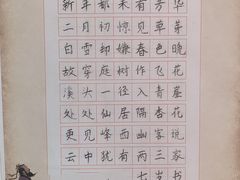 新年都未有芳华
二月初惊见草芽
白雪却嫌春色晚
故穿庭树作飞花
溪头一径入青崖
处处仙居隔杏花
更见峰西幽客说
云中犹有两三家